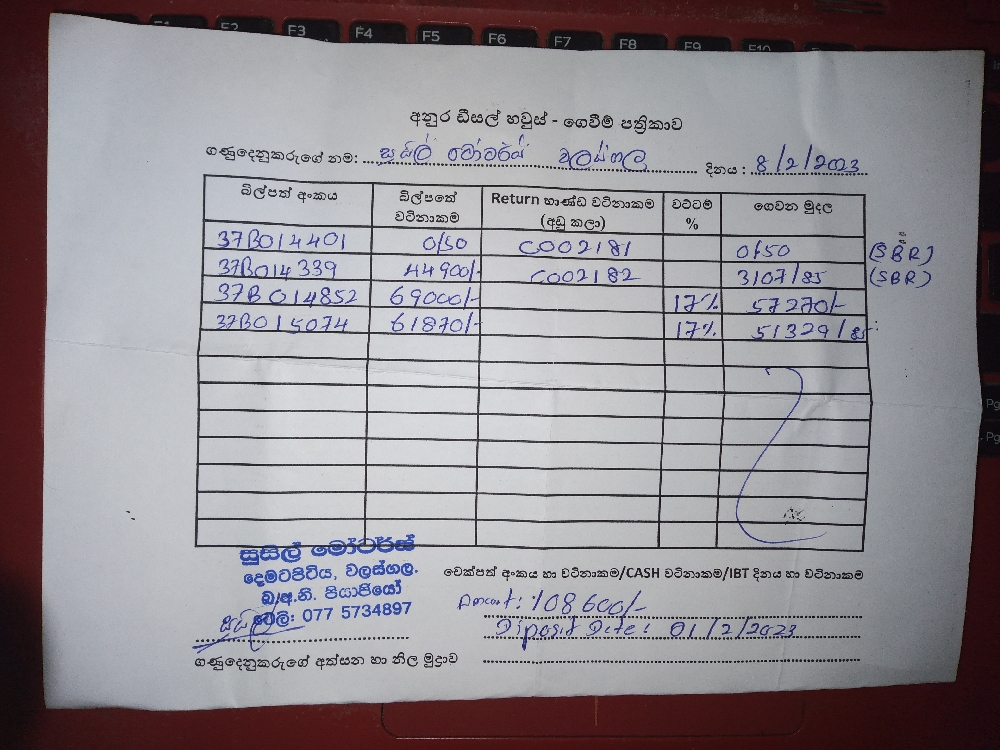 අනුර ඩීසල් හවුස් - ගෙවීම් පත්‍රිකාව
ගණුදෙනුකරුගේ නම: සුසිල් මෝටර්ස් වලස්ගල දිනය : 8/2/2023
බිල්පත් අංකය බිල්පතේ වටිනාකම Return භාණ්ඩ වටිනාකම (අඩු කලා) වට්ටම් % ගෙවන මුදල
37B014401 0/50 C002181 0/50 (SBR)
37B014339 44900/- C002182 3107/85 (SBR)
37B014852 69000/- 17% 57270/-
37B015074 61870/- 17% 51329/85
සුසිල් මෝටර්ස්
දෙමටපිටිය, වලස්ගල.
බ/අ.නි. පියාජියෝ
ටෙලි: 077 5734897
චෙක්පත් අංකය හා වටිනාකම/CASH වටිනාකම/IBT දිනය හා වටිනාකම
Amount: 108600/-
Diposit Date: 01/2/2023
ගණුදෙනුකරුගේ අත්සන හා නිල මුද්‍රාව